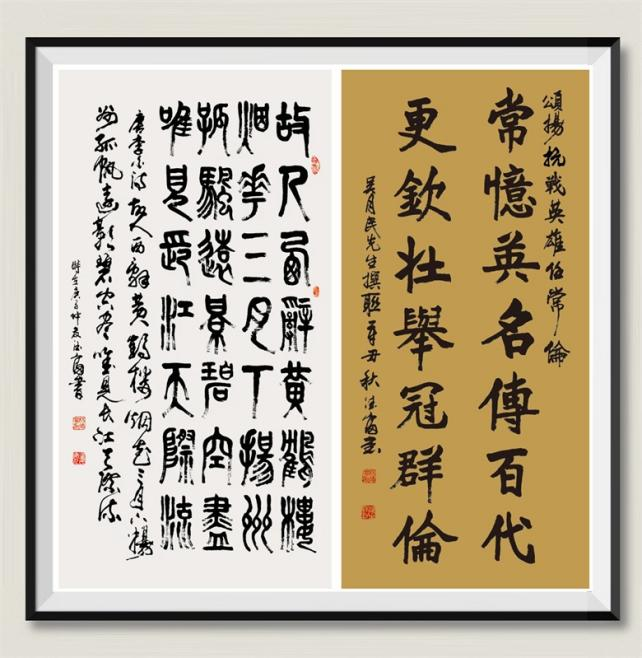 頌揚抗戰英雄伍常倫
常憶英名傳百代
更欽壯舉冠群倫
吴月民先生撰聯 辛丑秋 書
故人西辭黃鶴樓
烟華三月下揚州
孤帆遠景碧空盡
唯見長江天際流
唐李白詩 故人西辭黃鶴樓烟花三月下揚
州孤帆遠影碧空盡唯見長江天際流
時在庚子仲夏 書